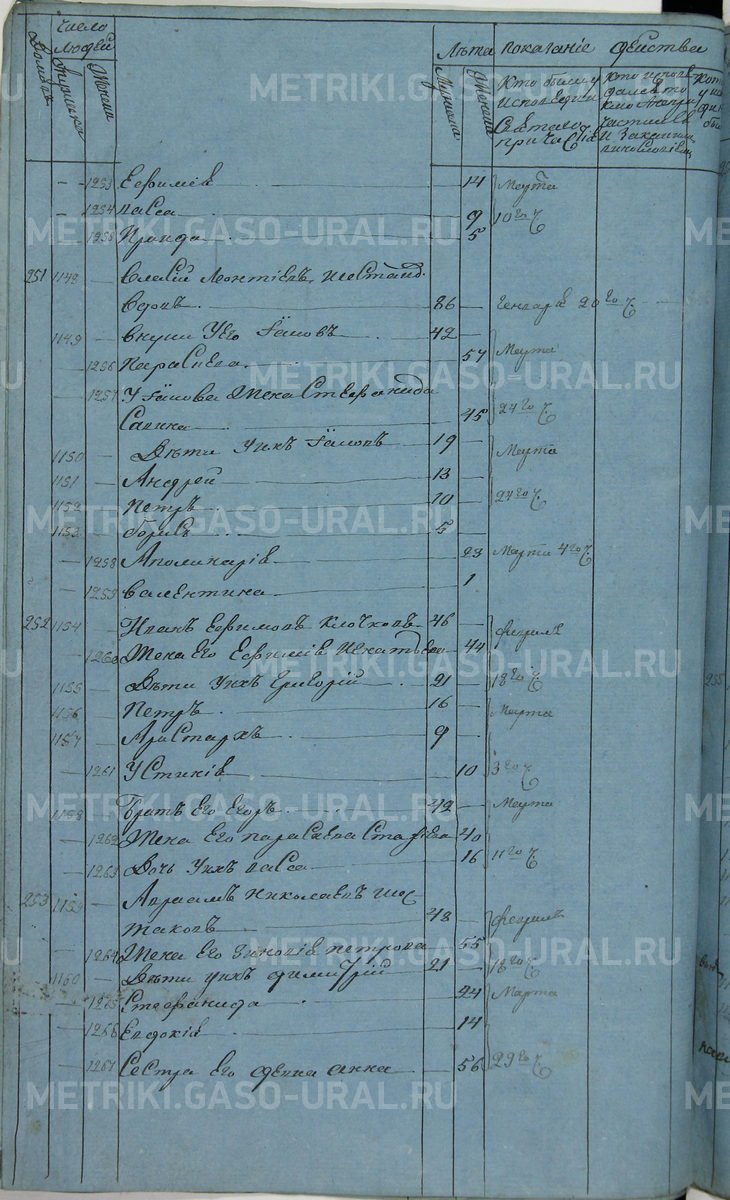 Число
Людей
Домовъ
Мужеска
Женска
Лѣта
Мужска
Женска
Показаніе дѣйства
Кто были у
исповеди и
Святаго
причастія
Кто испове
дался
1253 Евфимія 14 Марта
1254 Раиса 9 10го ч.
1255 Правда 5
251 1148 Власій Леонтіевъ Шестако
вовъ 86 Генваря 20го ч.
1149 внуки у его Іаковъ 42
1256 Параскева 54 Марта
1257 У Іакова жена Стефанида
Савина 45 24го ч.
1150 Дѣти у нихъ Іаковъ 19 Марта
1151 Андрей 13
1152 Петръ 10 24го ч.
1153 Борисъ 5
1258 Аполинарія 23 Марта 4го ч.
1259 Валентина 1
252 1154 Иванъ Ефимовъ Клочковъ 46 Февраля
1260 Жена его Евфимія Игнатьева 44
1155 Дѣти у нихъ Григорій 21 18го ч.
1156 Петръ 16 Марта
1157 Аристархъ 9
1261 Устинія 10 3го ч.
1158 Братъ его Егоръ 42 Марта
1262 Жена его Параскева 40
1263 Дочь у нихъ Раиса 16 11го ч.
253 1159 Авраамъ Николаевъ Шес
таковъ 48 Февраля
1264 Жена его Зиновія Петрова 55
1160 Дѣти у нихъ Димитрій 21 18го ч.
1265 Стефанида 24 Марта
1266 Евдокія 14
1267 Сестра его девка Анна 56 29го ч.
255
METRIKI.GASO-URAL.RU